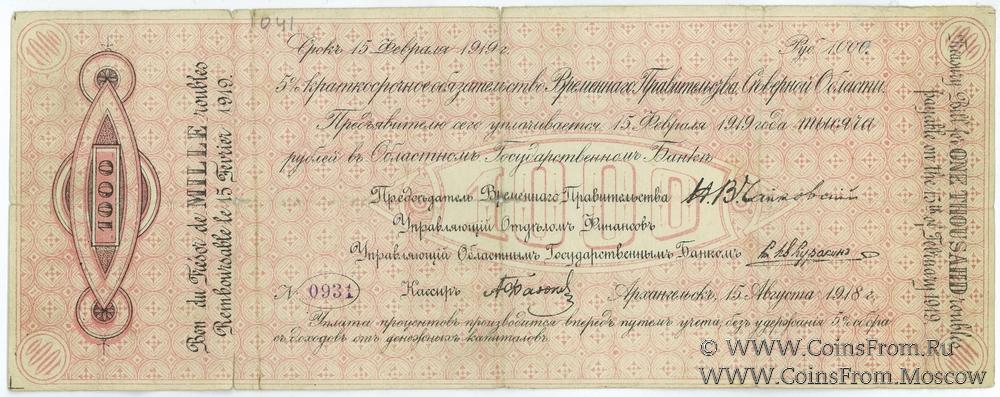 1041
Срокъ 15 Февраля 1919 г.
Руб. 1.000.
5% краткосрочное обязательство Временнаго Правительства Сѣверной Области.
Предъявителю сего уплачивается 15 Февраля 1919 года тысяча
рублей въ Областномъ Государственномъ Банкѣ
1000
Предсѣдатель Временнаго Правительства Н.В. Чайковскій
Управляющій Отдѣломъ Финансовъ
Управляющій Областнымъ Государственнымъ Банкомъ
№ 0931 Кассиръ
Архангельскъ, 15 Августа 1918 г.
Уплата процентовъ производится впередъ путемъ учета, безъ удержанія 5% сбора
съ доходовъ отъ денежныхъ капиталовъ.
1000
Bon du Trésor de MILLE roubles
Remboursable le 15 Fevrier 1919.
Treasury Bill for ONE THOUSAND roubles
payable on the 15th of February 1919.
© WWW.CoinsFrom.Ru
WWW.CoinsFrom.Moscow